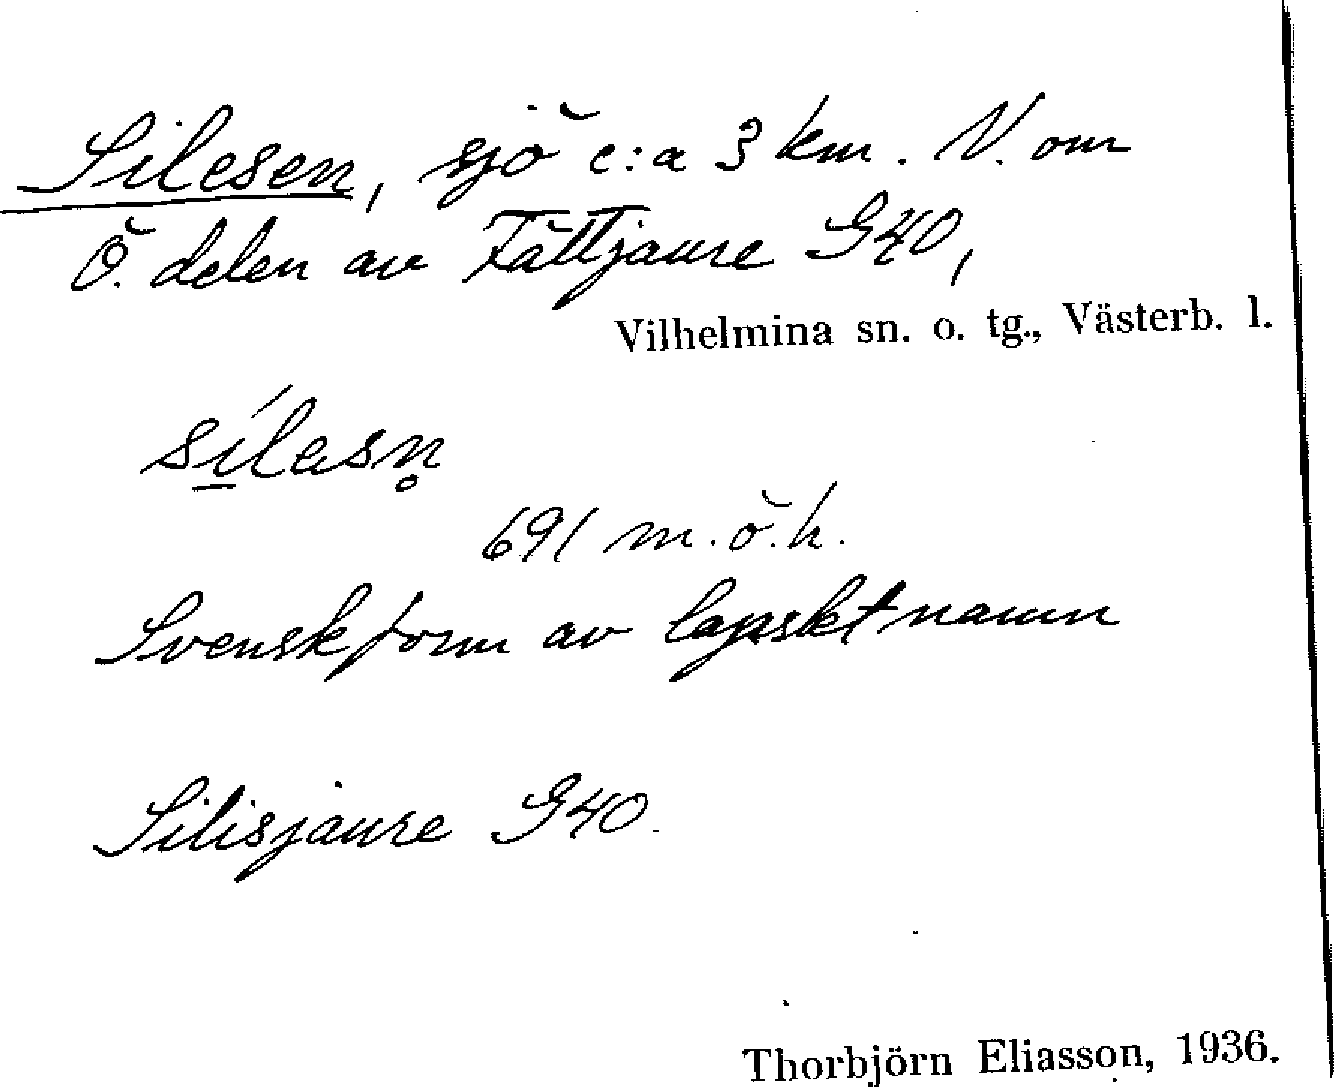 Silesen, sjö c:a 3 km. N. om
Ö. delen av Fättjaure G40,
Vilhelmina sn. o. tg., Västerb. l.
sílasn̥
691 m. ö. h.
Svensk form av lapskt namn
Silisjaure G40.
Thorbjörn Eliasson, 1936.